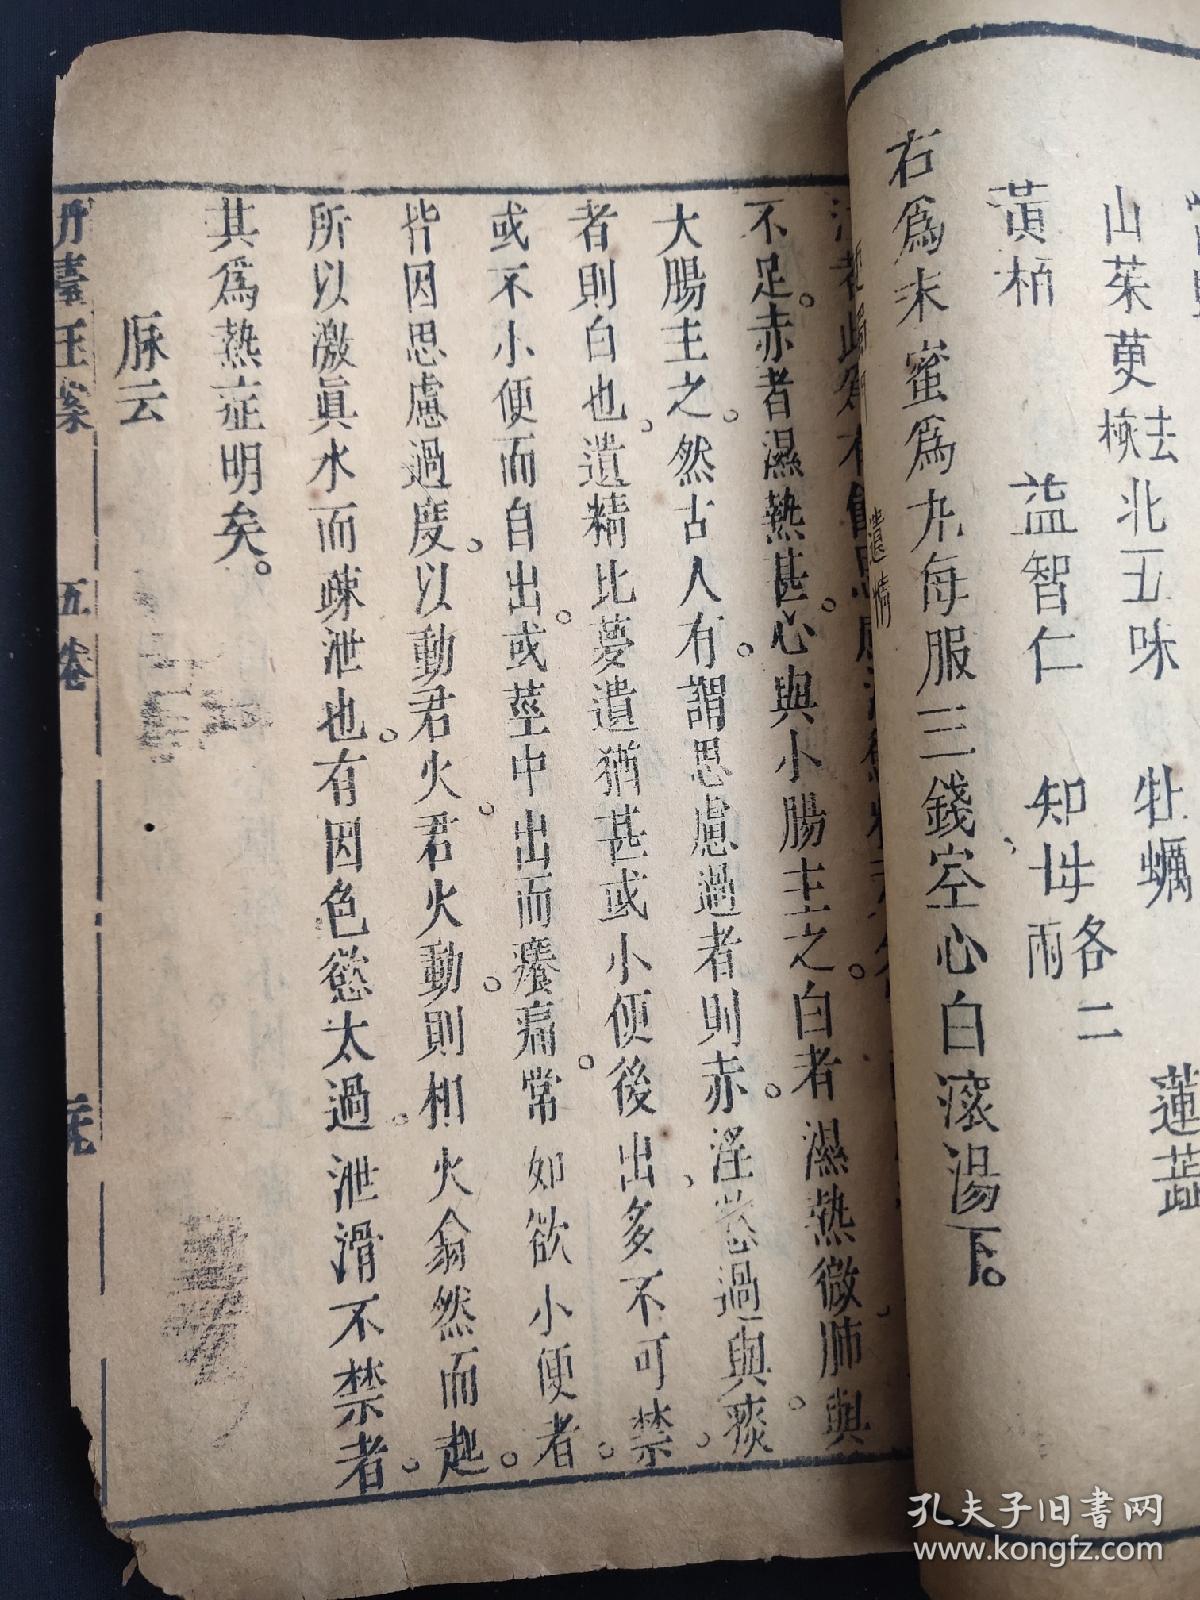 山茱萸去核 北五味 牡蠣 蓮蕋
黃柏 益智仁 知母各二兩
右爲末蜜爲丸每服三錢空心白滚湯下。
遺情
不足。赤者濕熱甚。心與小腸主之。白者濕熱微。肺與
大腸主之。然古人有。謂思慮過者則赤。淫慾過與痰
者則白也。遺精比夢遺猶甚或小便後出、多不可禁。
或不小便而自出。或莖中出而癢痛。常如欲小便者。
皆因思慮過度。以動君火。君火動。則相火翕然而起。
所以激眞水而疎泄也。有因色慾太過。泄滑不禁者。
其爲熱症明矣。
脉云
丹臺玉案 五卷
孔夫子旧书网
www.kongfz.com